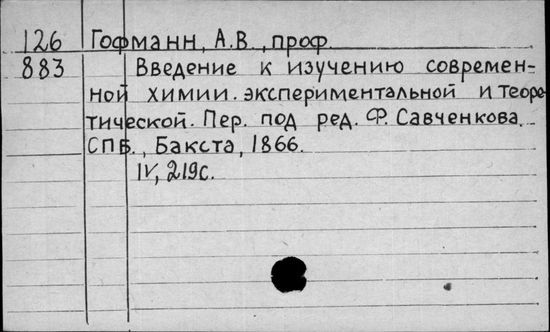 126 Гофманн, А.В., проф.
883 Введение к изучению современ-
ной химии. экспериментальной и теоре
тической. Пер. под ред. Ф. Савченкова.
СПБ., Бакста, 1866.
IV, 219с.